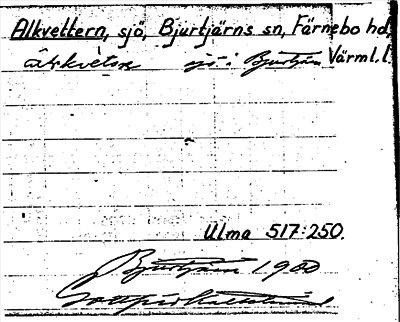 Alkvettern, sjö, Bjurtjärns sn, Färnebo hd,
sjö i Bjurtjärn Värml. l.
Ulma 517:250.
Bjurtjärn 1900